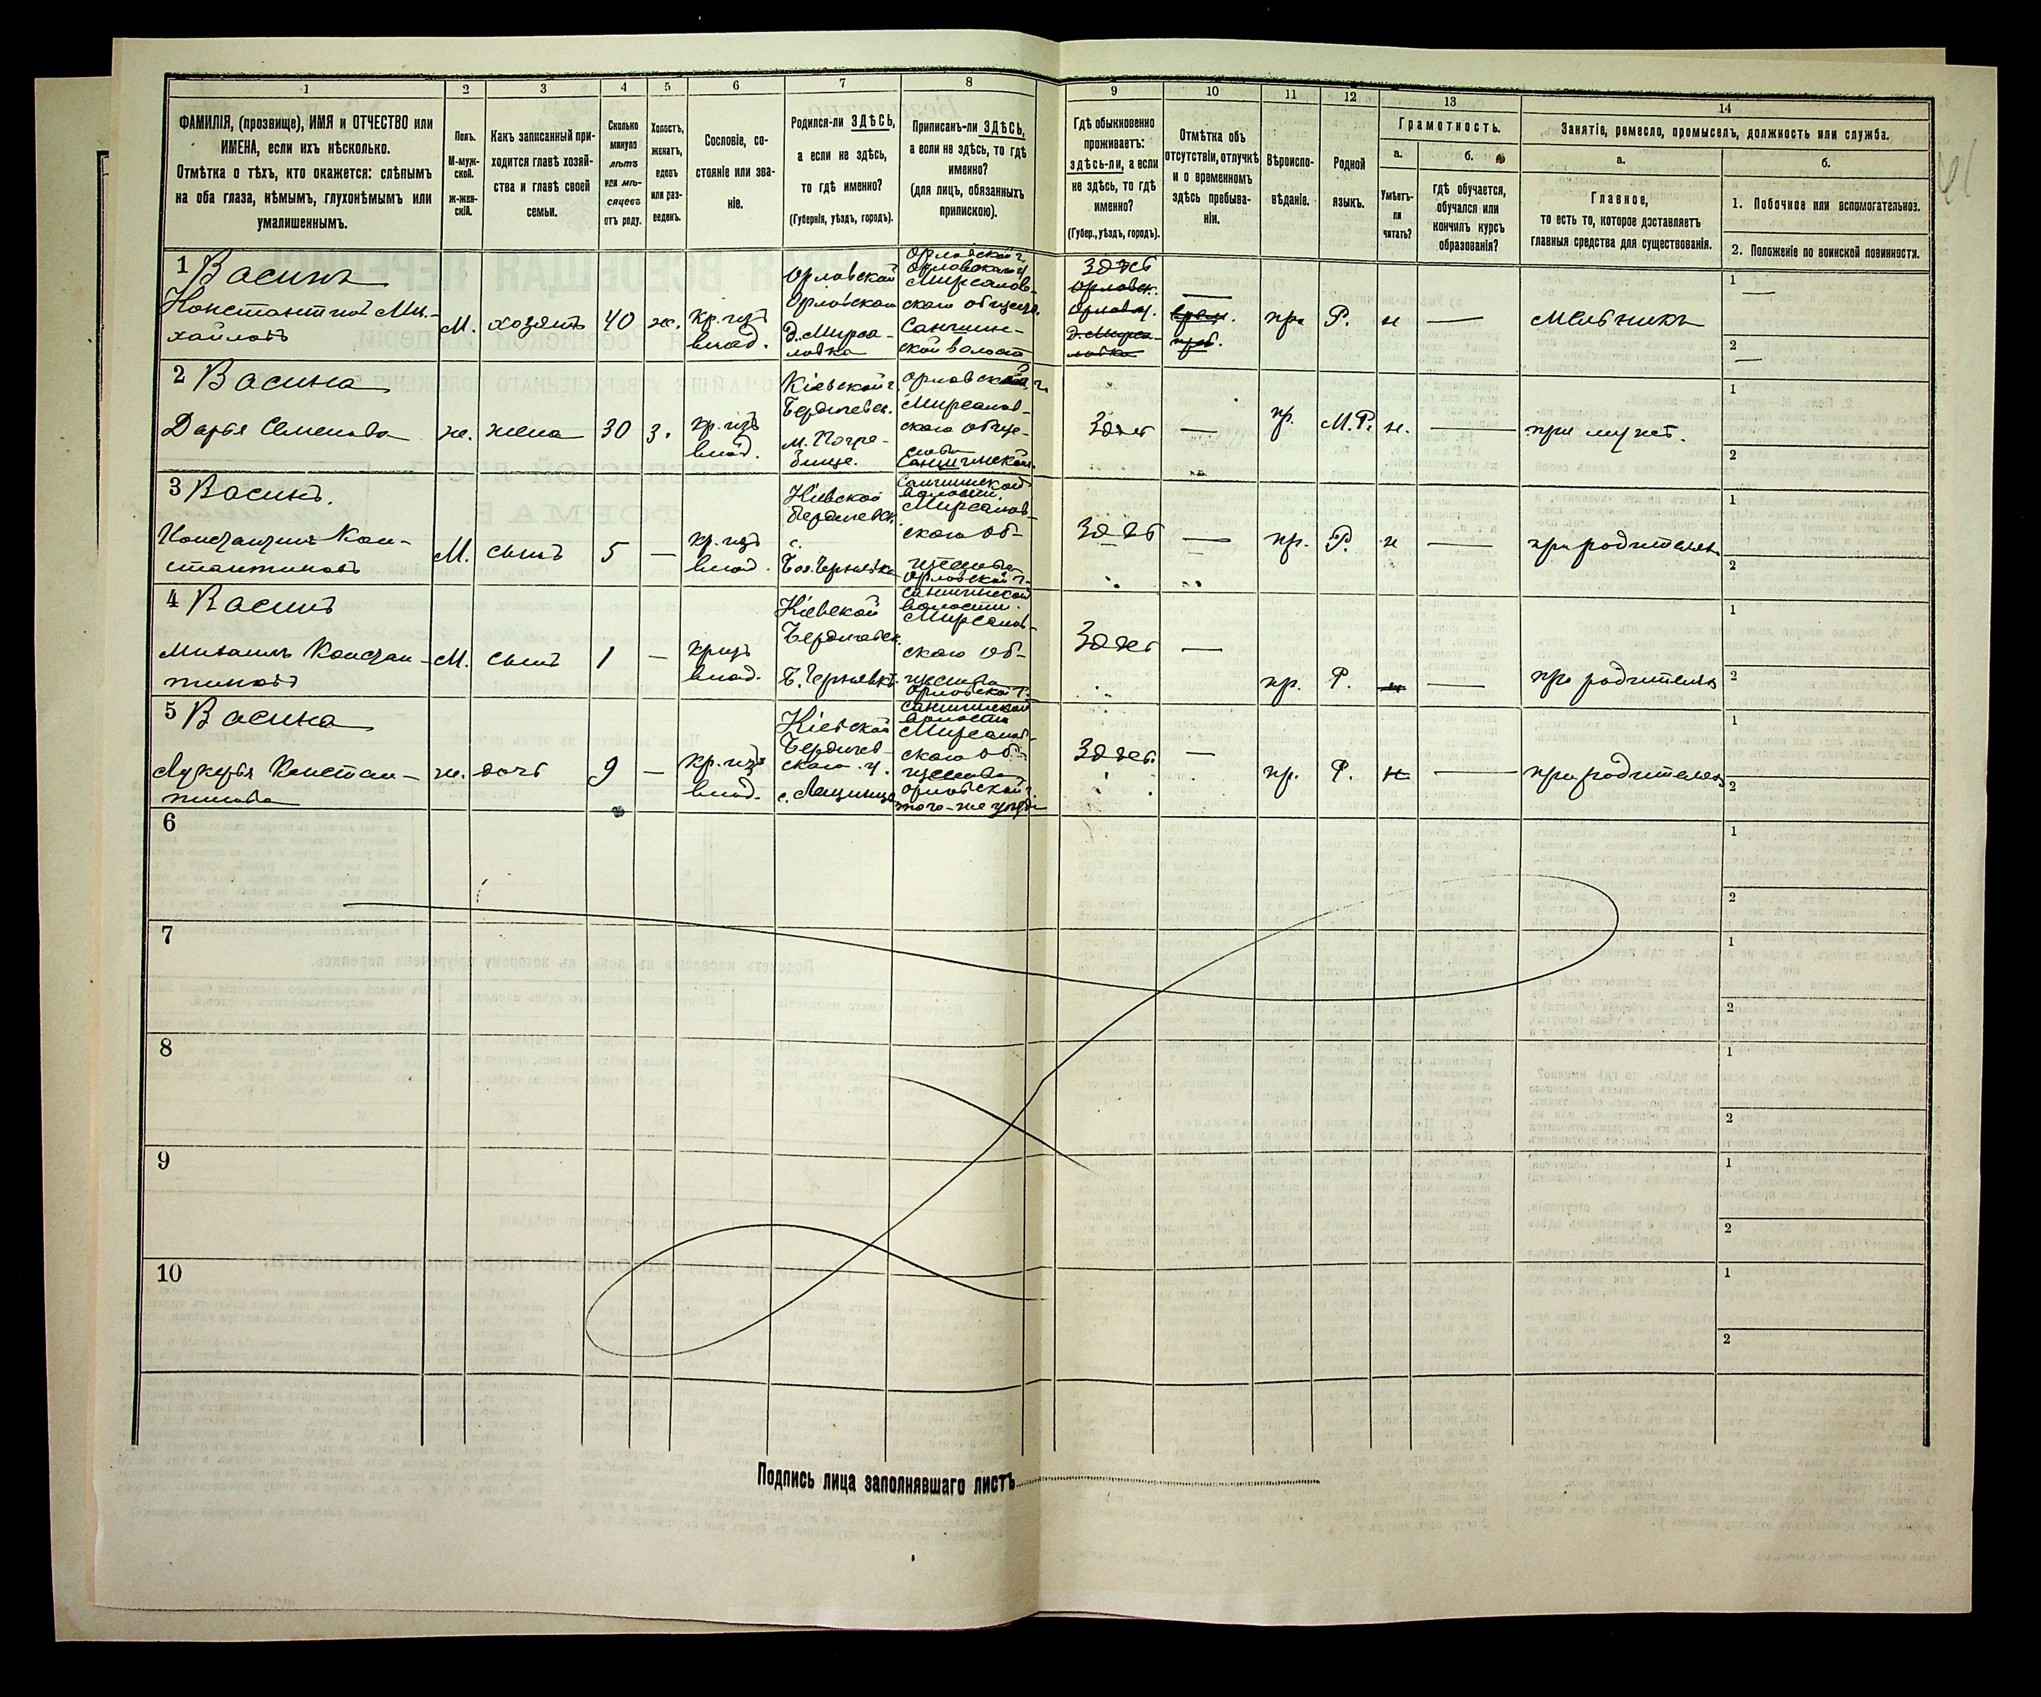 1 2 3 4 5 6 7 8 9 10 11 12 13 14
ФАМИЛІЯ, (прозвище), ИМЯ и ОТЧЕСТВО или
ИМЕНА, если ихъ нѣсколько.
Отмѣтка о тѣхъ, кто окажется: слѣпымъ
на оба глаза, нѣмымъ, глухонѣмымъ или
умалишеннымъ.
Полъ.
М-муж-
ской.
Ж-жен-
скій.
Какъ записанный при-
ходится главѣ хозяй-
ства и главѣ своей
семьи.
Сколько
минуло
лѣтъ
или мѣ-
сяцевъ
отъ роду.
Холостъ,
женатъ,
вдовъ
или раз-
веденъ.
Сословіе, со-
стояніе или зва-
ніе.
Родился-ли ЗДѢСЬ,
а если не здѣсь,
то гдѣ именно?
(Губернія, уѣздъ, городъ).
Приписанъ-ли ЗДѢСЬ,
а если не здѣсь, то гдѣ
именно?
(для лицъ, обязанныхъ
припискою).
Гдѣ обыкновенно
проживаетъ:
здѣсь-ли, а если
не здѣсь, то гдѣ
именно?
(Губер., уѣздъ, городъ).
Отмѣтка объ
отсутствіи, отлучкѣ
и о временномъ
здѣсь пребыва-
ніи.
Вѣроиспо-
вѣданіе.
Родной
языкъ.
Грамотность.
а.
Умѣетъ-
ли
читать?
б.
гдѣ обучается,
обучался или
кончилъ курсъ
образованія?
Занятіе, ремесло, промыселъ, должность или служба.
а.
Главное,
то есть то, которое доставляетъ
главныя средства для существованія.
б.
1. Побочное или вспомогательное.
2. Положеніе по воинской повинности.
1 Васинъ
Константинъ Ми-
хайловъ
М. хозяинъ 40 ж. кр. изъ
влад.
Орловской
Орловскои
д. Мирса-
новка
Орловской г.
Орловскаго у
Мирсанов-
скаго общест.
Санчин-
ской волости
Здѣсь
Орловск.
Орлов у.
д. Мирса-
новка
—
врем.
преб.
пр. Р. н — мельникъ
1 —
2 —
2 Васина
Дарья Семенова
ж. жена 30 з. кр. изъ
влад.
Кіевской г.
Бердичевск.
м. Погре-
бище.
Орловской г
Мирсанов-
скаго обще-
ства
Здѣсь — пр. М.Р. н. — при мужѣ.
1
2
3 Васинъ.
Константинъ Кон-
стантиновъ
М. сынъ 5 — кр. изъ
влад.
Кіевской
Бердичевск.
волости.
Мирсанов-
скаго об-
щества
Орловской г.
Здѣсь — пр. Р. н — при родителяхъ
1
2
4 Васинъ
Михаилъ Констан-
тиновъ
М. сынъ 1 — кр изъ
влад.
Кіевской
Бердичевск.
волости.
Мирсанов-
скаго об-
щества
Орловской г.
Здѣсь — пр. Р. н — при родителяхъ
1
2
5 Васина
Лукерья Констан-
тинова
ж. дочь 9 — кр. изъ
влад.
Кіевской
Бердичев-
скаго у.
волости
Мирсанов-
скаго об-
щества
Орловской г.
того-же уѣзда
Здѣсь. — пр. Р. н — при родителяхъ
1
2
6 1
2
7 1
2
8 1
2
9 1
2
10 1
2
Подпись лица заполнявшаго листъ